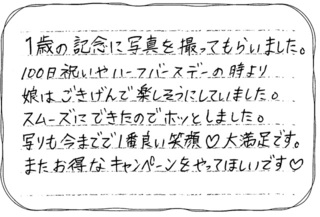 1歳の記念に写真を撮ってもらいました。
100日祝いやハーフバースデーの時より
娘はごきげんで楽しそうにしていました。
スムーズにできたのでホッとしました。
写りも今までで1番良い笑顔♡大満足です。
またお得なキャンペーンをやってほしいです♡